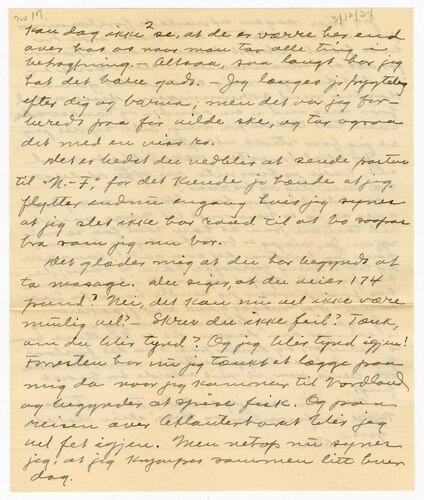 no 17 3/12/24
kan dag ikke se, at de er værre her end
over hos os naar man tar alle ting i
betragtning. - Altsaa, saa langt har jeg
hat det bare godt. - Jeg længes jo frygtelig
efter dig og barna; men det var jeg for-
beredt paa før vilde ske, og tar ogsaa
det med en viss ro.
Det er bedst du vedblir at sende posten
til "N.-F.", for det kunde jo hænde at jeg
flytter endnu engang hvis jeg synes
at jeg slet ikke har raad til at bo saapas
bra som jeg nu bor.
Det glæder mig at du har begyndt at
ta masage. Du siger, at du veier 174
pund? Nei, det kan nu vel ikke være
mulig vel? - Skrev du ikke feil? Tænk,
om du blir tynd? Og jeg blir tynd igjen!
Forresten har nu jeg tænkt at lægge paa
mig da naar jeg kommer til Nordland
og begynder at spise fisk. Og paa
reisen over Atlanterhavet blir jeg
vel fet igjen. Men netop nu synes
jeg, at jeg krymper sammen litt hver
dag.